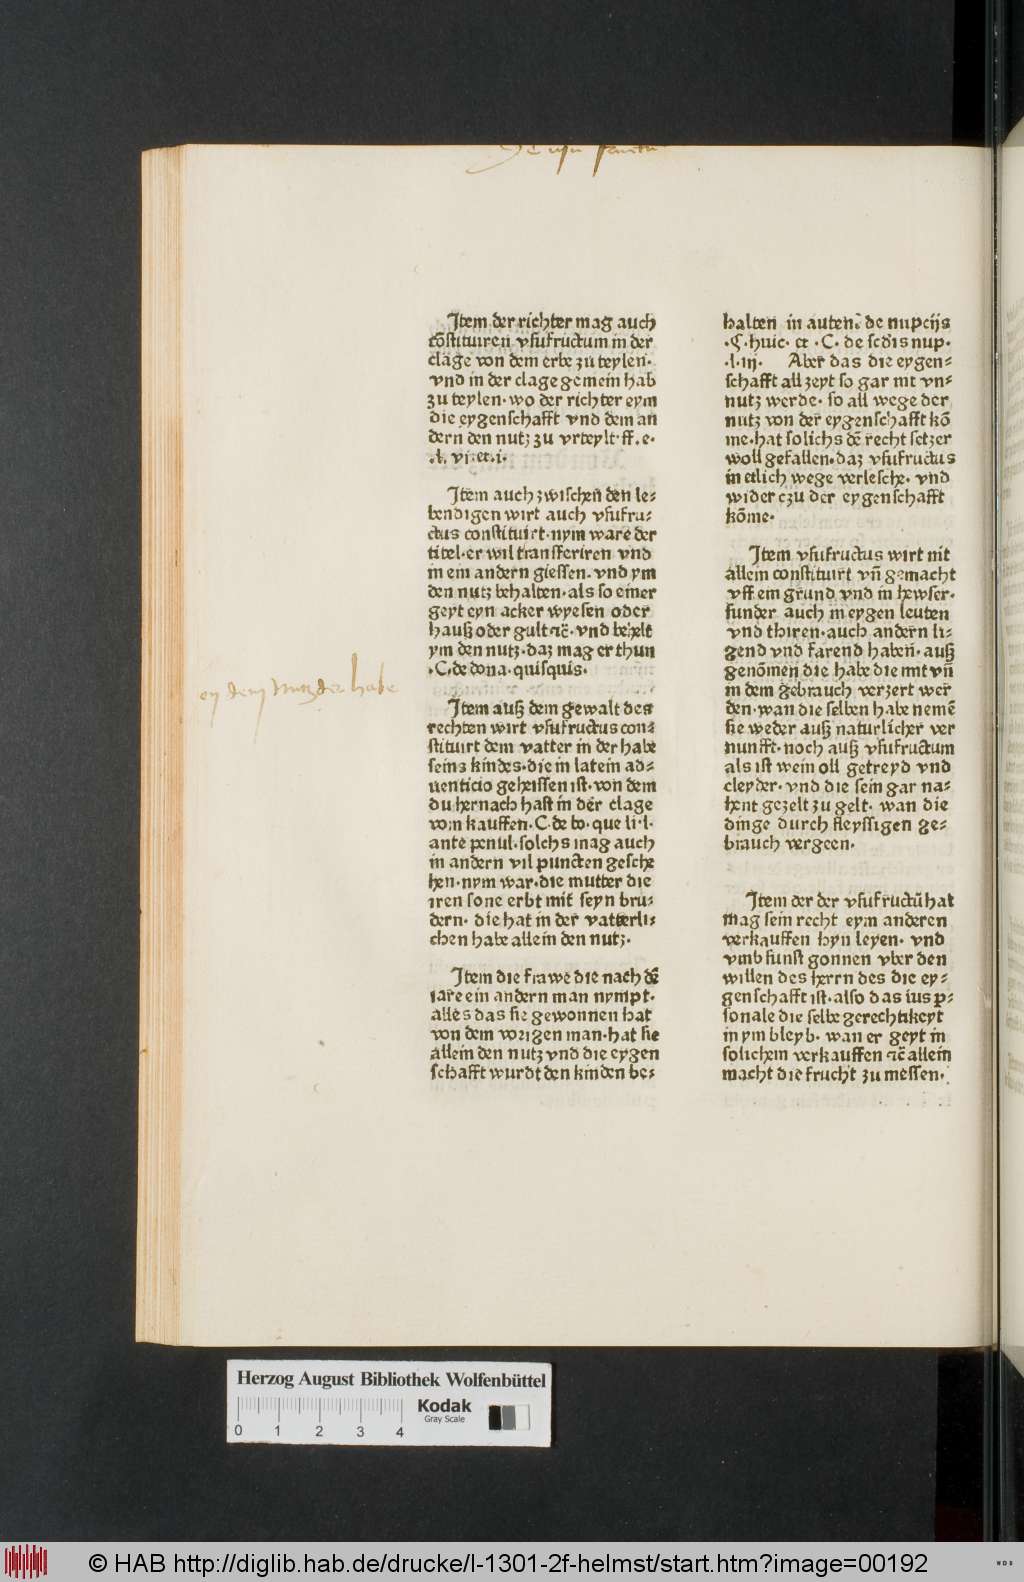 Item der richter mag auch
cõstituiren vsufructum in der
clage von dem erbe zu teylen·
vnd in der clage gemein hab
zu teylen· wo der richter eym
die eygenschafft vnd dem an
dern den nutz zu vrteylt· ff. e.
.l. vi. et. i.
Item auch zwischen den le⸗
bendigen wirt auch vsufru⸗
ctus constituirt· nym ware der
titel· er wil transferiren vnd
in ein andern giessen· vnd ym
den nutz behalten· als so einer
geyt eyn acker wyesen oder
hauß oder gult ⁊c̃· vnd behelt
ym den nutz· daz mag er thun
·C. de dona· quisquis·
en dem Nutz der habe
Item auß dem gewalt des
rechten wirt vsufructus con⸗
stituirt dem vatter in der habe
seins kindes· die in latein ad⸗
uenticio geheissen ist· von dem
du hernach hast in der clage
vom kauffen· C. de bo· que li· l·
ante penul· solchs mag auch
in andern vil puncten gesche
hen· nym war· die mutter die
iren sone erbt mit seyn bru⸗
dern· die hat in der vatterli⸗
chen habe allein den nutz·
Item die frawe die nach dẽ
iare ein andern man nympt·
alles das sie gewonnen hat
von dem vorigen man· hat sie
allein den nutz vnd die eygen
schafft wurdt den kinden be⸗
halten in auten̄· de nupcijs
·§· huic· et ·C. de scdis nup·
·l· iij· Aber das die eygen⸗
schafft all zeyt so gar nit vn⸗
nutz werde· so all wege der
nutz von der eygenschafft kõ
me· hat solichs dẽ recht setzer
woll gefallen· daz vsufructus
in etlich wege verlesche· vnd
wider czu der eygenschafft
kõme·
Item vsufructus wirt nit
allein constituirt vñ gemacht
vff ein grund vnd in hewser·
sunder auch in eygen leuten
vnd thiren· auch andern li⸗
gend vnd farend haben· auß
genõmen die habe die mit vñ
in dem gebrauch verzert wer
den· wan die selben habe nemẽ
sie weder auß naturlicher ver
nunfft· noch auß vsufructum
als ist wein oll getreyd vnd
cleyder· vnd die sein gar na⸗
hent gezelt zu gelt· wan die
dinge durch fleyssigen ge⸗
brauch vergeen·
Item der der vsufructũ hat
mag sein recht eym anderen
verkauffen hyn leyen· vnd
vmb sunst gonnen vber den
willen des herrn des die ey⸗
genschafft ist· also das ius p⸗
sonale die selbe gerechtikeyt
in ym bleyb· wan er geyt in
solichem verkauffen ⁊c̃ allein
macht die frucht zu messen·
Herzog August Bibliothek Wolfenbüttel
Kodak
Gray Scale
0 1 2 3 4
© HAB http://diglib.hab.de/drucke/l-1301-2f-helmst/start.htm?image=00192